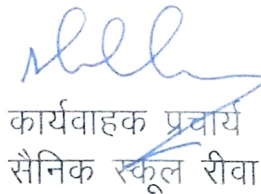 कार्यवाहक प्रचार्य
सैनिक स्कूल रीवा